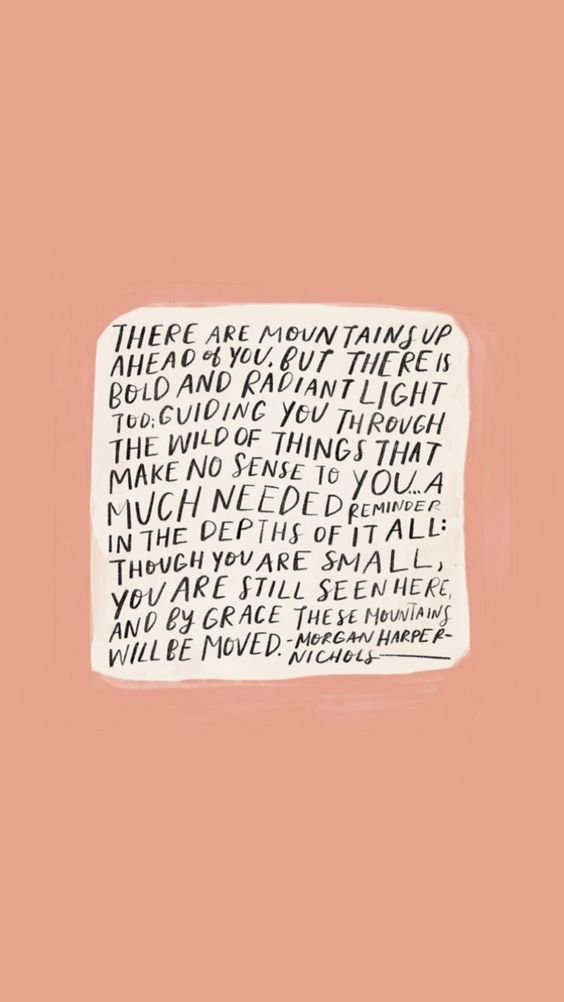 THERE ARE MOUNTAINS UP
AHEAD of YOU. BUT THERE IS
BOLD AND RADIANT LIGHT
TOO: GUIDING YOU THROUGH
THE WILD OF THINGS THAT
MAKE NO SENSE TO YOU... A
MUCH NEEDED REMINDER
IN THE DEPTHS OF IT ALL:
THOUGH YOU ARE SMALL,
YOU ARE STILL SEEN HERE,
AND BY GRACE THESE MOUNTAINS
WILL BE MOVED. -MORGAN HARPER-
NICHOLS